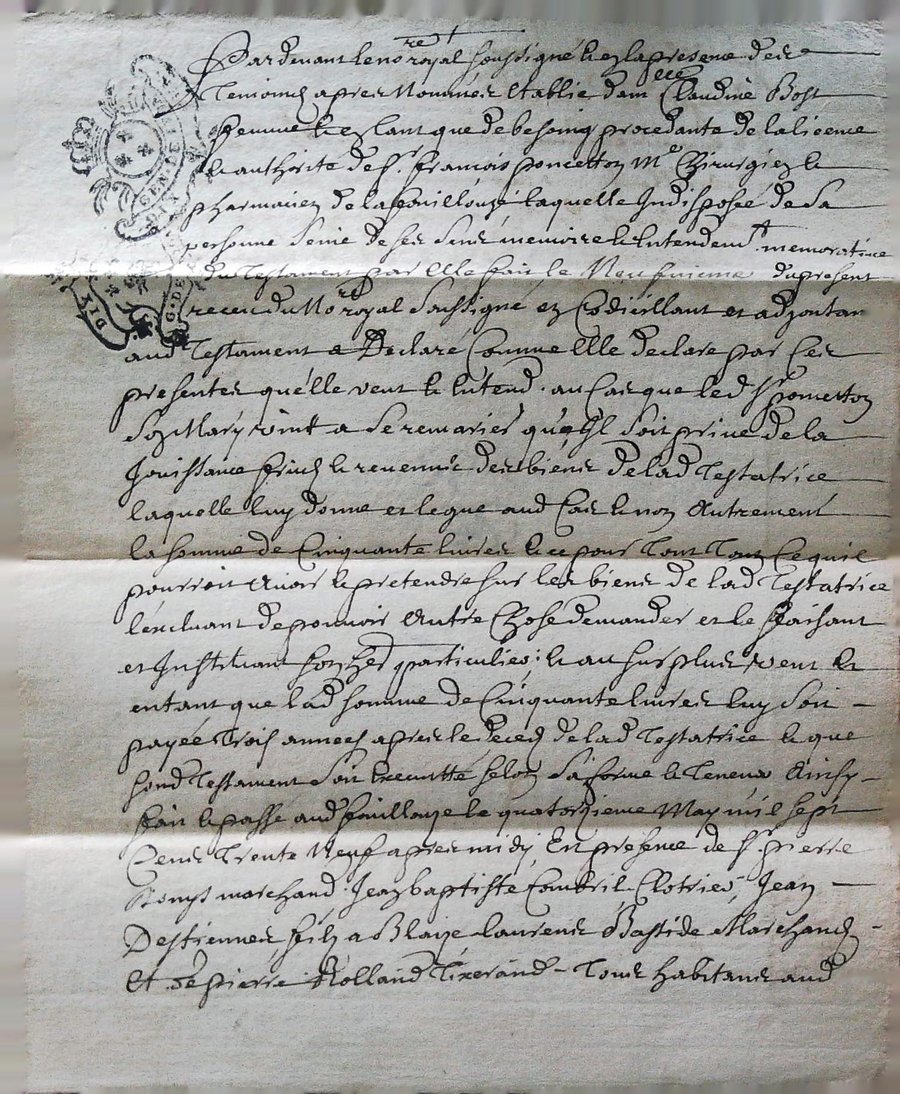 Pardevant le no.re royal soussigné et en la presence des
Temoins apres Nommés Establie dam.lle Claudine Bost
femme et en tant que de besoing procedante de la licence
et authorité de s.r francois poncetton M.e Chirurgien et
pharmacien de la fouillouze laquelle Indisposée de sa
personne Seine de ses sens memoire et entendem.t memorative
du Testament par elle fait le Neufvieme du present
recu du No.re royal Soussigné en Codicillant et adjoutant
aud Testament a Declaré Comme elle declare par Ces
presentes qu'elle veut et entend. au Cas que led s.r poncetton
son Mary vint a se remarier qu'il soit privé de la
Jouissance fruits et revenus des biens de lad Testatrice
laquelle luy donne et legue aud Cas et non Autrement
la somme de Cinquante livres et ce pour Tout Ce quil
pourroit Avoir et pretendre sur les biens de lad Testatrice
l'excluant de pouvoir Autre Chose demander et le faisant
et Instituant son her particulier; et au surplus veut et
entant que lad somme de Cinquante livres luy soit -
payée Trois années apres le deced de lad Testatrice et que
sond Testament soit executté selon sa forme et Teneur Ainsy -
fait et passé aud fouillouze le quatorzieme May mil sept
Cens Trente Neuf apres midy, En presence de s.r pierre
marchand. Jean baptiste Clotrier, Jean -
Destiennes fils a Blaize laurens Bastide Marchand -
Et de pierre Rolland Tixerand - Tous habitans aud
GEN. DE
DIX
G. DE
DIX